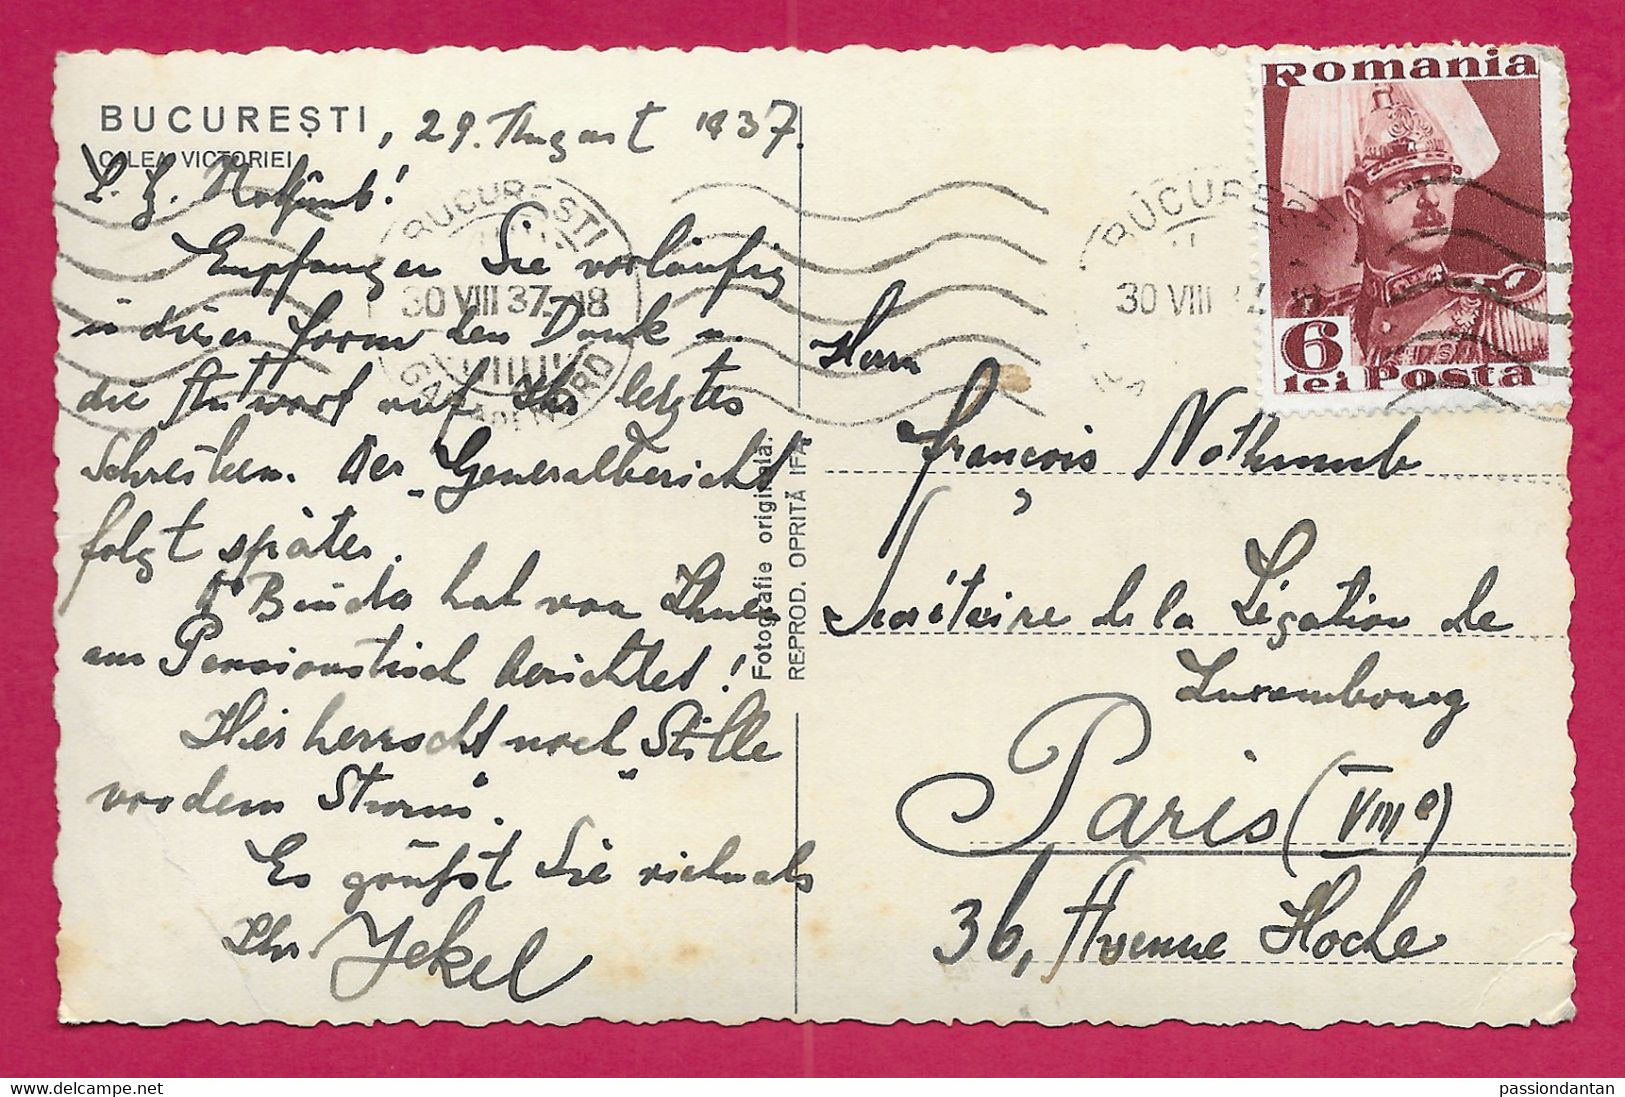 BUCUREȘTI, 29. August 1937.
CALEA VICTORIEI
L. H. !
Empfangen Sie vorläufig
in dieser Form den Dank u.
die Antwort auf Ihr letztes
Schreiben. Der "Generalbericht"
folgt später.
Binder hat von Ihnen
am Pensionstisch berichtet!
Hier herrscht noch "Stille
vor dem Sturm".
Es grüßt Sie vielmals
Ihr Jekel
Fotografie originală.
REPROD. OPRITĂ IFA
BUCUREȘTI
30 VIII 37-18
GARA DE NORD
BUCUREȘTI
30 VIII 37 18
Romania
6
lei Posta
Herrn
François Nothumb
Secrétaire de la Légation de
Luxembourg
Paris (VIIIe)
36, Avenue Hoche
passiondantan